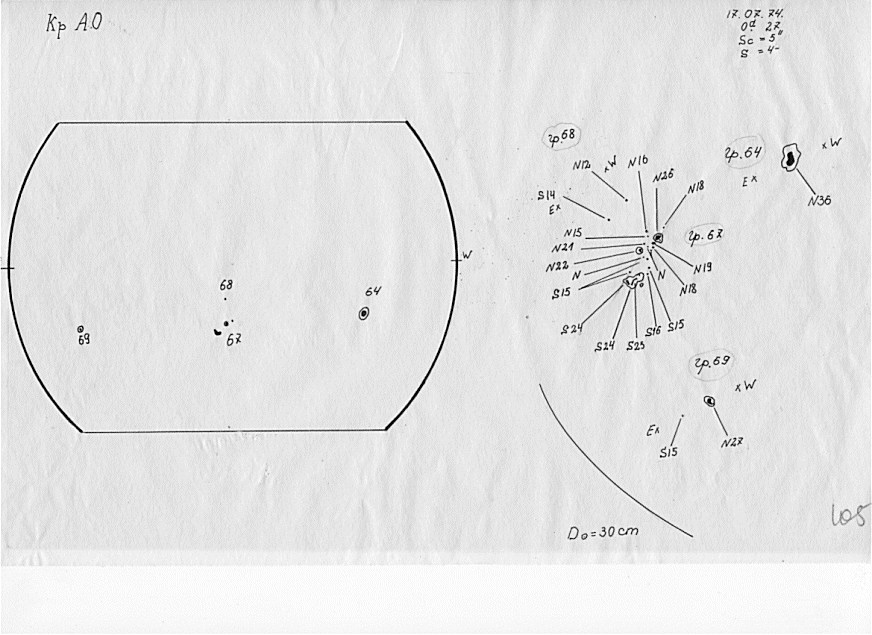 Кр АО
17.07.74.
0d 27
Sc = 5"
S = 4-
W
68
64
69
67
гр.68
N12
W
N16
N26
N18
S14
E
N15
гр.67
N21
N22
N
S15
N19
N
N18
S24
S24
S23
S16
S15
гр.64
W
E
N36
гр.69
W
E
S15
N27
D0=30cm
105